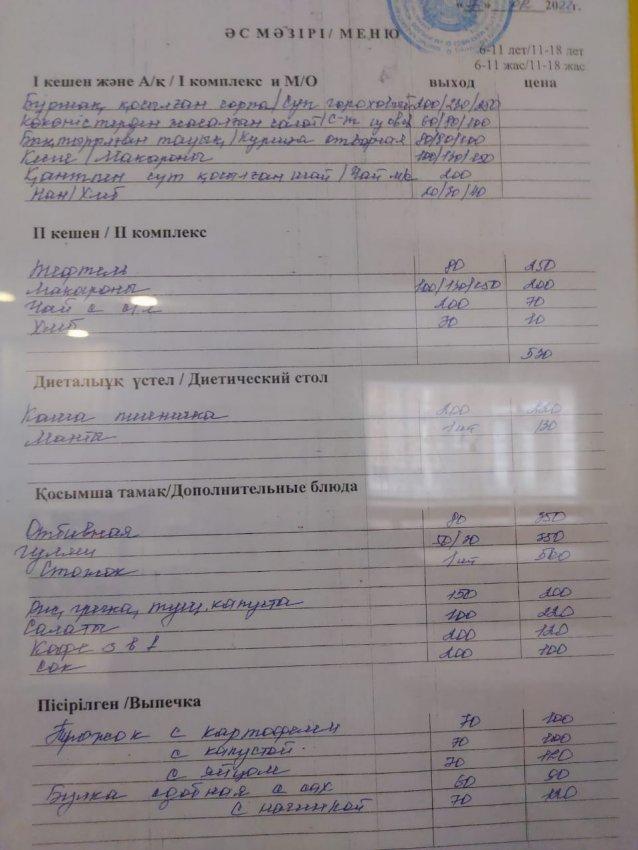 2022г.
ӘС МӘЗІРІ/ МЕНЮ
6-11 лет/11-18 лет
6-11 жас/11-18 жас
І кешен және А/қ / І комплекс и М/О выход цена
Бұршақ қосылған сорпа/Суп гороховый 200/250/250
Көкөністерден жасалған салат/С-т из св 60/80/100
Бұқтырылған тауық/Курица отварная 80/90/100
Кеспе/Макароны 100/130/150
Қантпен сүт қосылған шай/Чай 200
Нан/Хлеб 20/30/40
ІІ кешен / ІІ комплекс
Тефтели 80 250
Макароны 100/130/150 200
Чай с 200 70
Хлеб 20 10
530
Диеталыұқ үстел / Диетический стол
Каша пшеничка 200 220
Манты 1 шт 130
Қосымша тамақ/Дополнительные блюда
Отбивная 80 350
гуляш 50/30 350
1 шт 500
Рис, гречка, туш. капуста 150 200
Салаты 100 220
Кофе 3 в 1 200 120
Сок 200 100
Пісірілген /Выпечка
Пирожок с картофелем 70 100
с капустой 70 100
с яйцом 70 120
Булка сдобная с сах 60 90
с начинкой 70 120